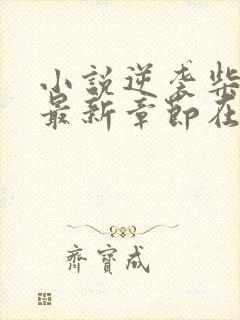 小說逆袭柴
最新章節在
齊寶成